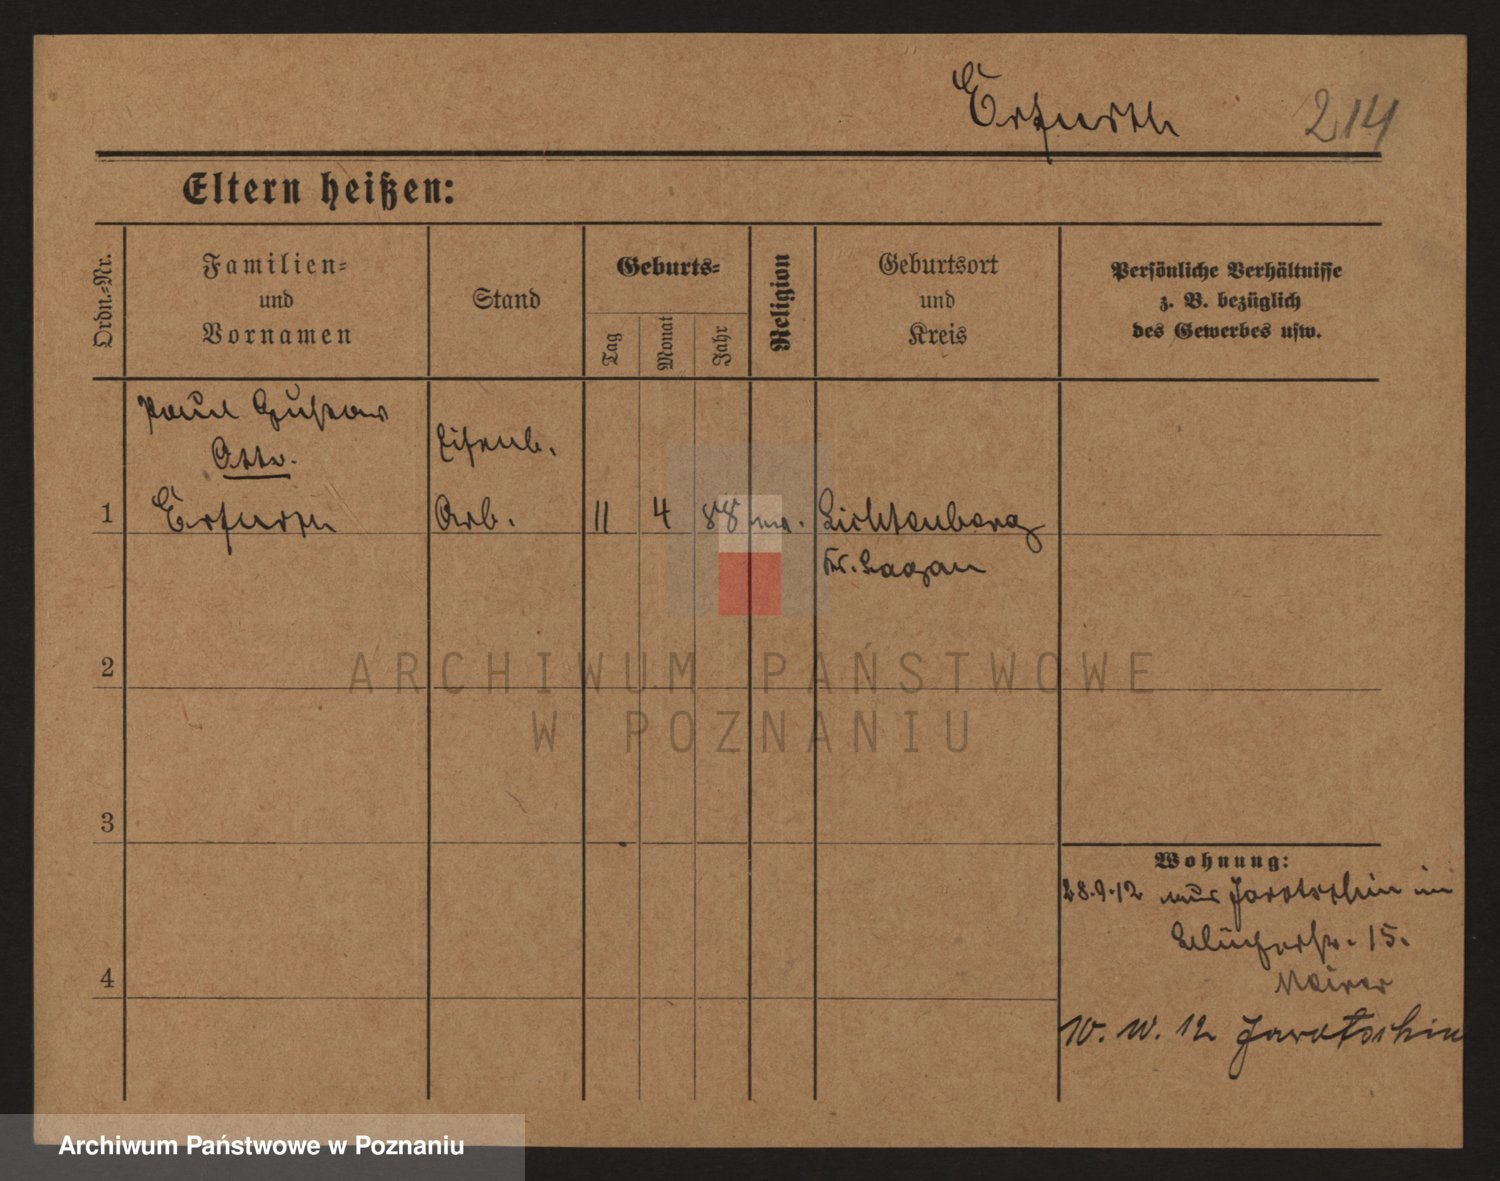 Erfurth 214
Eltern heißen:
Ordn.-Nr.
Familien-
und
Vornamen
Stand
Geburts-
Tag
Monat
Jahr
Religion
Geburtsort
und
Kreis
Persönliche Verhältnisse
z. B. bezüglich
des Gewerbes usw.
Paul Gustav
Otto.
Erfurth
Eisenb.
Arb.
1
11 4 88
Lichtenberg
Kr. Sagan
2
3
4
Wohnung:
28.9.12 aus Jarotschin in
Blücherstr. 15.
12 Jarotschin
ARCHIWUM PAŃSTWOWE
W POZNANIU
Archiwum Państwowe w Poznaniu